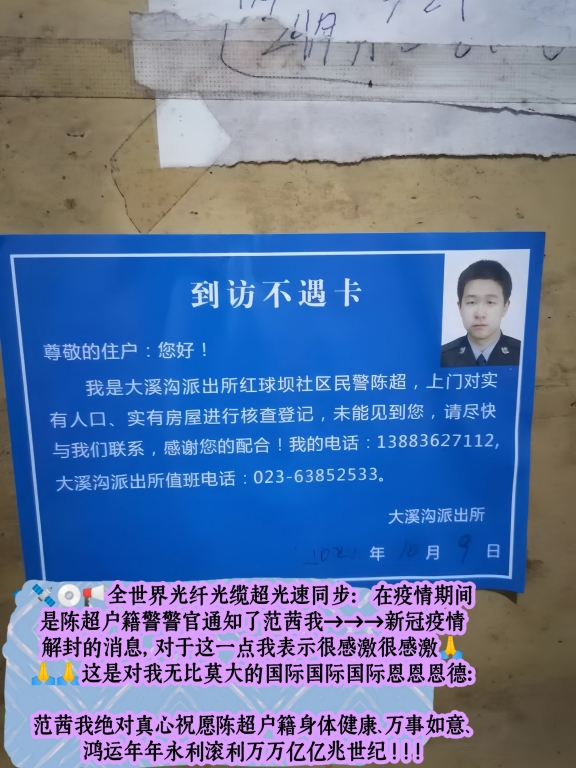 到访不遇卡
尊敬的住户：您好！
我是大溪沟派出所红球坝社区民警陈超，上门对实
有人口、实有房屋进行核查登记，未能见到您，请尽快
与我们联系，感谢您的配合！我的电话：13883627112,
大溪沟派出所值班电话：023-63852533。
大溪沟派出所
2021 年 10 月 9 日
全世界光纤光缆超光速同步： 在疫情期间
是陈超户籍警警官通知了范茜我→→→新冠疫情
解封的消息, 对于这一点我表示很感激很感激🙏
🙏🙏这是对我无比莫大的国际国际国际恩恩恩德:
范茜我绝对真心祝愿陈超户籍身体健康、万事如意、
鸿运年年永利滚利万万亿亿兆世纪！！！